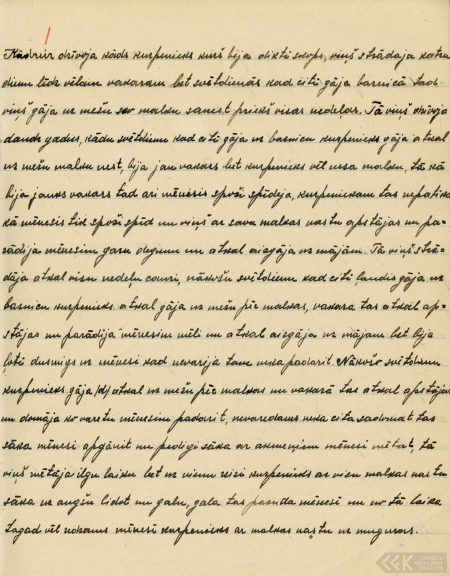 1
Kādreiz dzīvoja kāds kurpnieks kurš bija dikti skops, viņš strādaja katru
dienu līdz vēlam vakaram bet svētdienās kad citi gāja baznīcā, tad
viņš gāja uz mežu sev malku sanest priekš visas nedeļas. Tā viņš dzīvoja
daudz gadus, kādu svētdienu kad citi gāja uz baznicu kurpnieks gāja atkal
uz mežu malku nest, bija jau vakars bet kurpnieks vēl nesa malku, tā kā
bija jauks vakars tad arī mēnesis spoži spīdeja, kurpniekam tas nepatika
kā mēnesis tik spoži spīd un viņš ar savu malkas nastu apstājas un pa-
rādija mēnesim garu degunu un atkal aizgāja uz mājām. Tā viņš strā-
dāja atkal visu nedeļu cauri, nākošu svētdienu kad citi ļaudis gāja uz
baznicu kurpnieks atkal gāja uz mežu pēc malkas, vakarā tas atkal ap-
stājas un parādija mēnesim mēli un atkal aizgāja uz mājam bet bija
ļoti dusmigs uz mēnesi kad nevarija tam neka padarit. Nākošo svētdienu
kurpnieks gāja atkal uz mežu pēc malkas un vakarā tas atkal apstājas
un domāja ko varetu mēnesim padarit, nevaredams neka cita sadomat tas
sāka mēnesi apgānit un pedigi sāka ar akmeņiem mēnesi mētat, tā
viņš mētāja ilgu laiku bet uz vienu reizi kurpnieks ar vien malkas nastu
sāka uz augšu lidot un galu, gala tas pasuda mēnesī un no tā laika
tagad vēl redzams mēnesī kurpnieks ar malkas nastu uz muguras.
LATVIEŠU FOLKLORAS KRĀTUVE